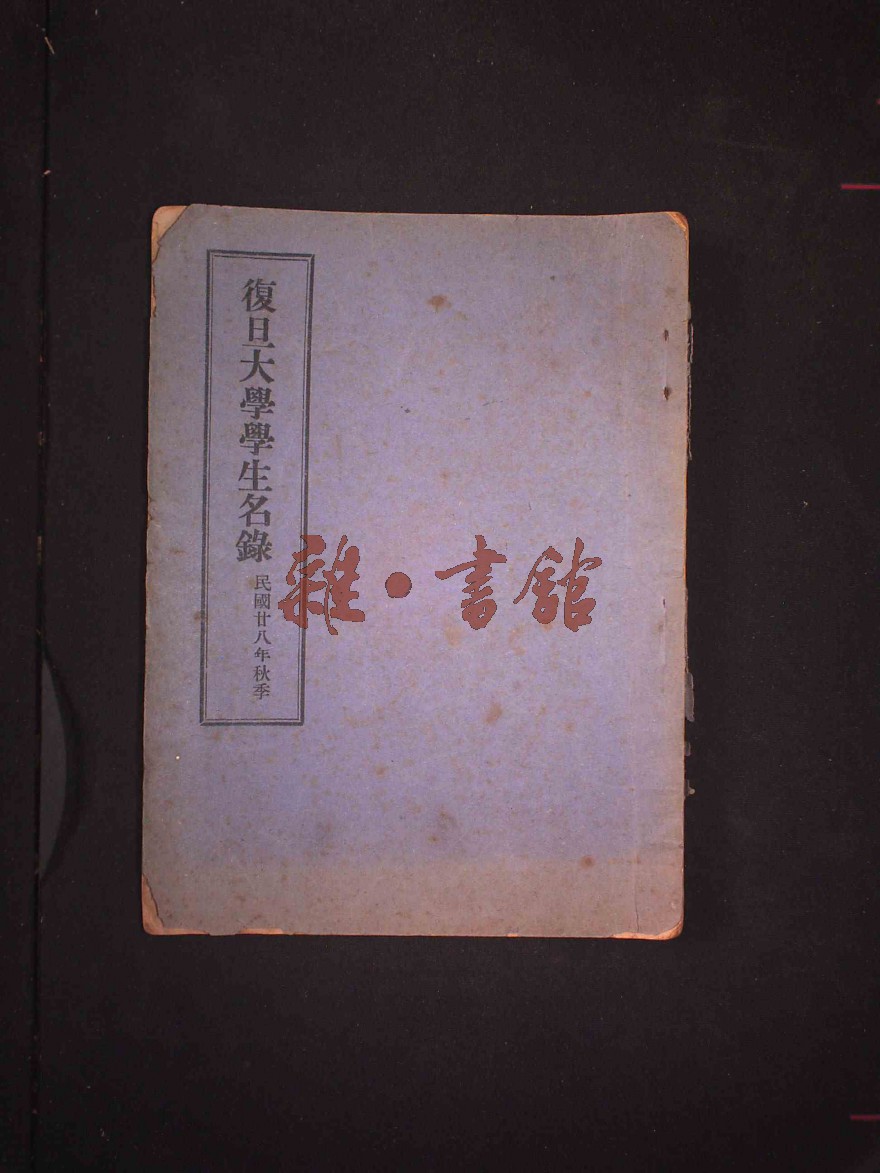 復旦大學學生名錄
民國廿八年秋季
雜·書館